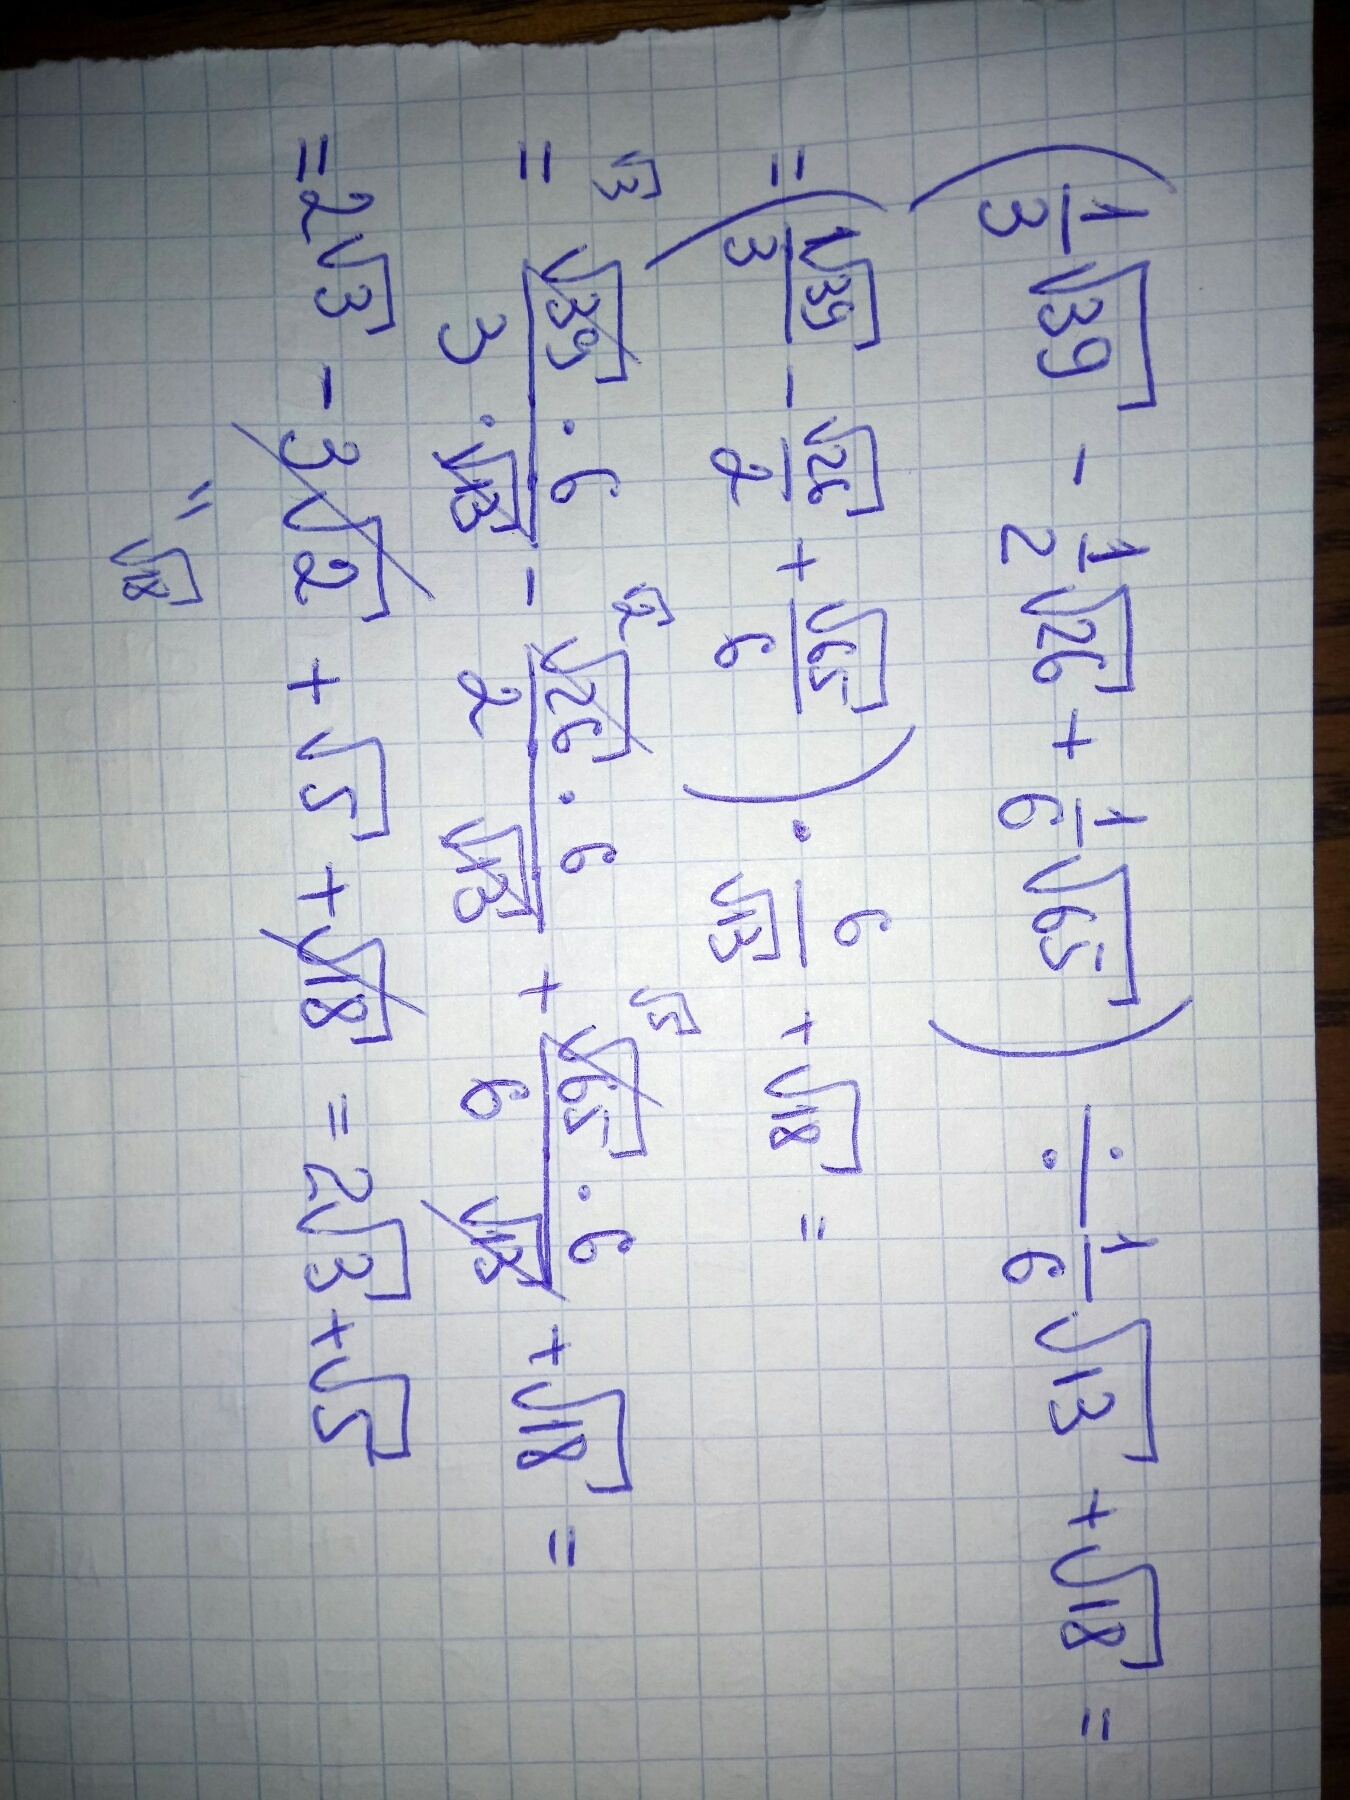 (1/3 √39 - 1/2 √26 + 1/6 √65) ÷ 1/6 √13 + √18 =
= (1√39/3 - √26/2 + √65/6) · 6/√13 + √18 =
√3 √2 √5
= √39 · 6 / 3 · √13 - √26 · 6 / 2 √13 + √65 · 6 / 6 √13 + √18 =
= 2√3 - 3√2 + √5 + √18 = 2√3 + √5
" √18